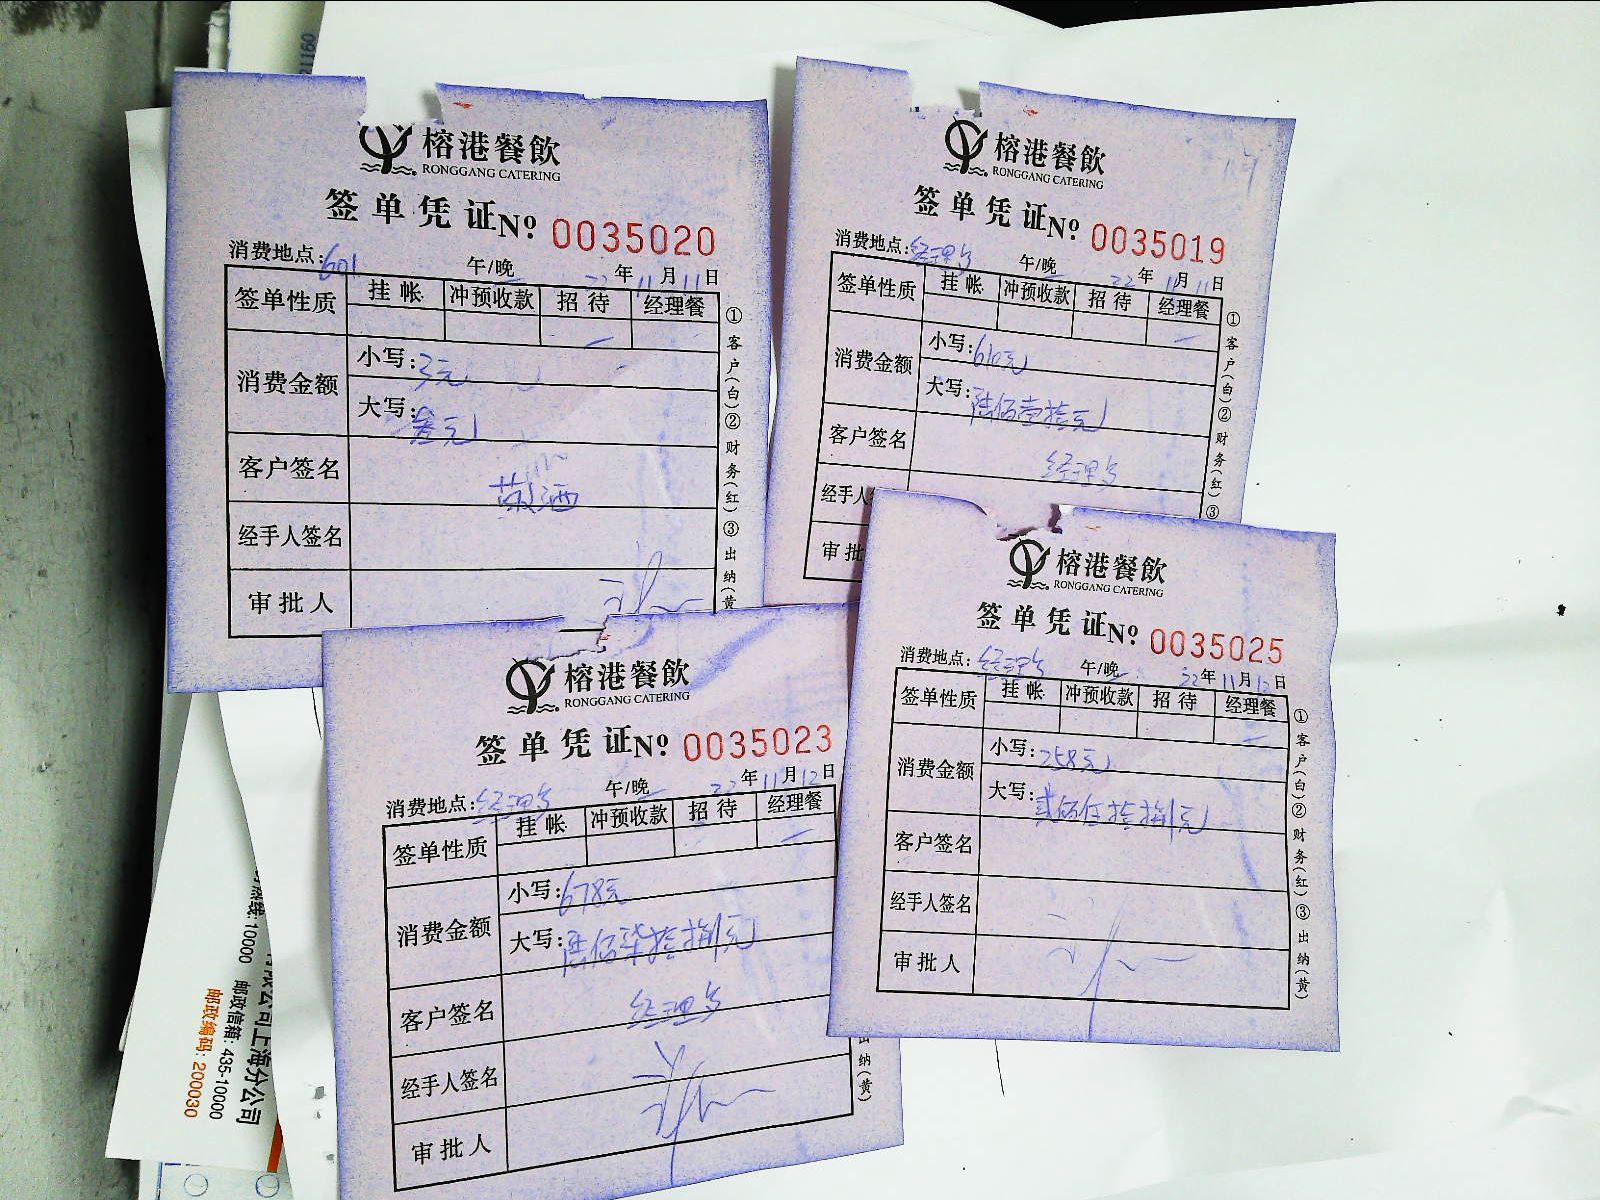 榕港餐飲
RONGGANG CATERING
签单凭证Nº 0035020
消费地点:601 午/晚 22年11月11日
签单性质 挂帐 冲预收款 招待 经理餐
消费金额 小写:3元
大写:叁元
客户签名
敬酒
经手人签名
审批人
①客户(白)②财务(红)③出纳(黄
榕港餐飲
RONGGANG CATERING
签单凭证Nº 0035019
消费地点:经理 午/晚 22年11月11日
签单性质 挂帐 冲预收款 招待 经理餐
消费金额 小写:610元
大写:陆佰壹拾元
客户签名 经理
经手人
审批
①客户(白)②财务(红)③
榕港餐飲
RONGGANG CATERING
签单凭证Nº 0035023
消费地点:经理 午/晚 22年11月12日
签单性质 挂帐 冲预收款 招待 经理餐
消费金额 小写:678元
大写:陆佰柒拾捌元
客户签名 经理
经手人签名
审批人
出纳(黄)
榕港餐飲
RONGGANG CATERING
签单凭证Nº 0035025
消费地点:经理 午/晚 22年11月12日
签单性质 挂帐 冲预收款 招待 经理餐
消费金额 小写:258元
大写:贰佰伍拾捌元
客户签名
经手人签名
审批人
①客户(白)②财务(红)③出纳(黄)
有限公司上海分公司
热线:10000 邮政信箱:435-10000
邮政编码:200030